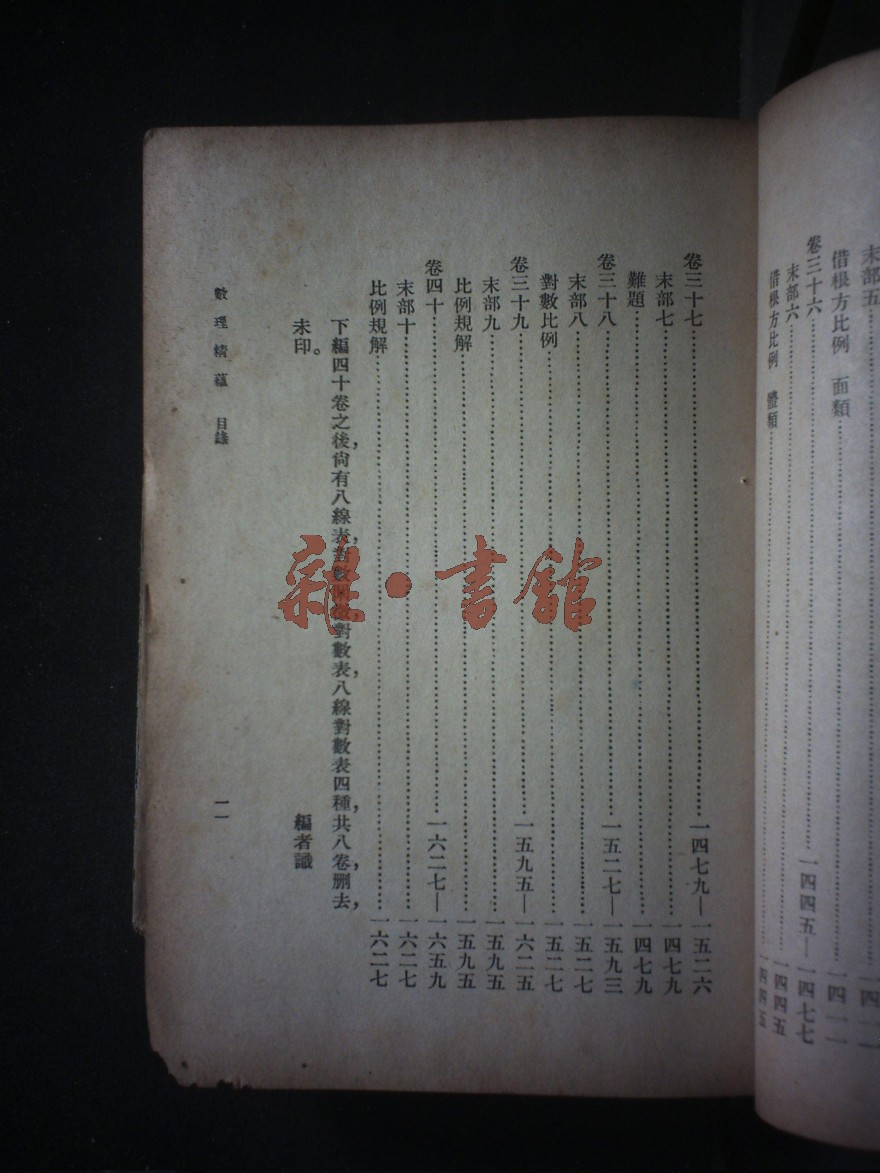 末部五……一四一一
借根方比例　面類……一四一一
卷三十六……一四四五—一四七七
末部六……一四四五
借根方比例　體類……一四四五
卷三十七……一四七九—一五二六
末部七……一四七九
難題……一四七九
卷三十八……一五二七—一五九三
末部八……一五二七
對數比例……一五二七
卷三十九……一五九五—一六二五
末部九……一五九五
比例規解……一五九五
卷四十……一六二七—一六五九
末部十……一六二七
比例規解……一六二七
下編四十卷之後，尙有八線表，對數闡微，對數表，八線對數表四種，共八卷，删去，
未印。
編者識
數理精蘊　目錄
一一
雜·書館